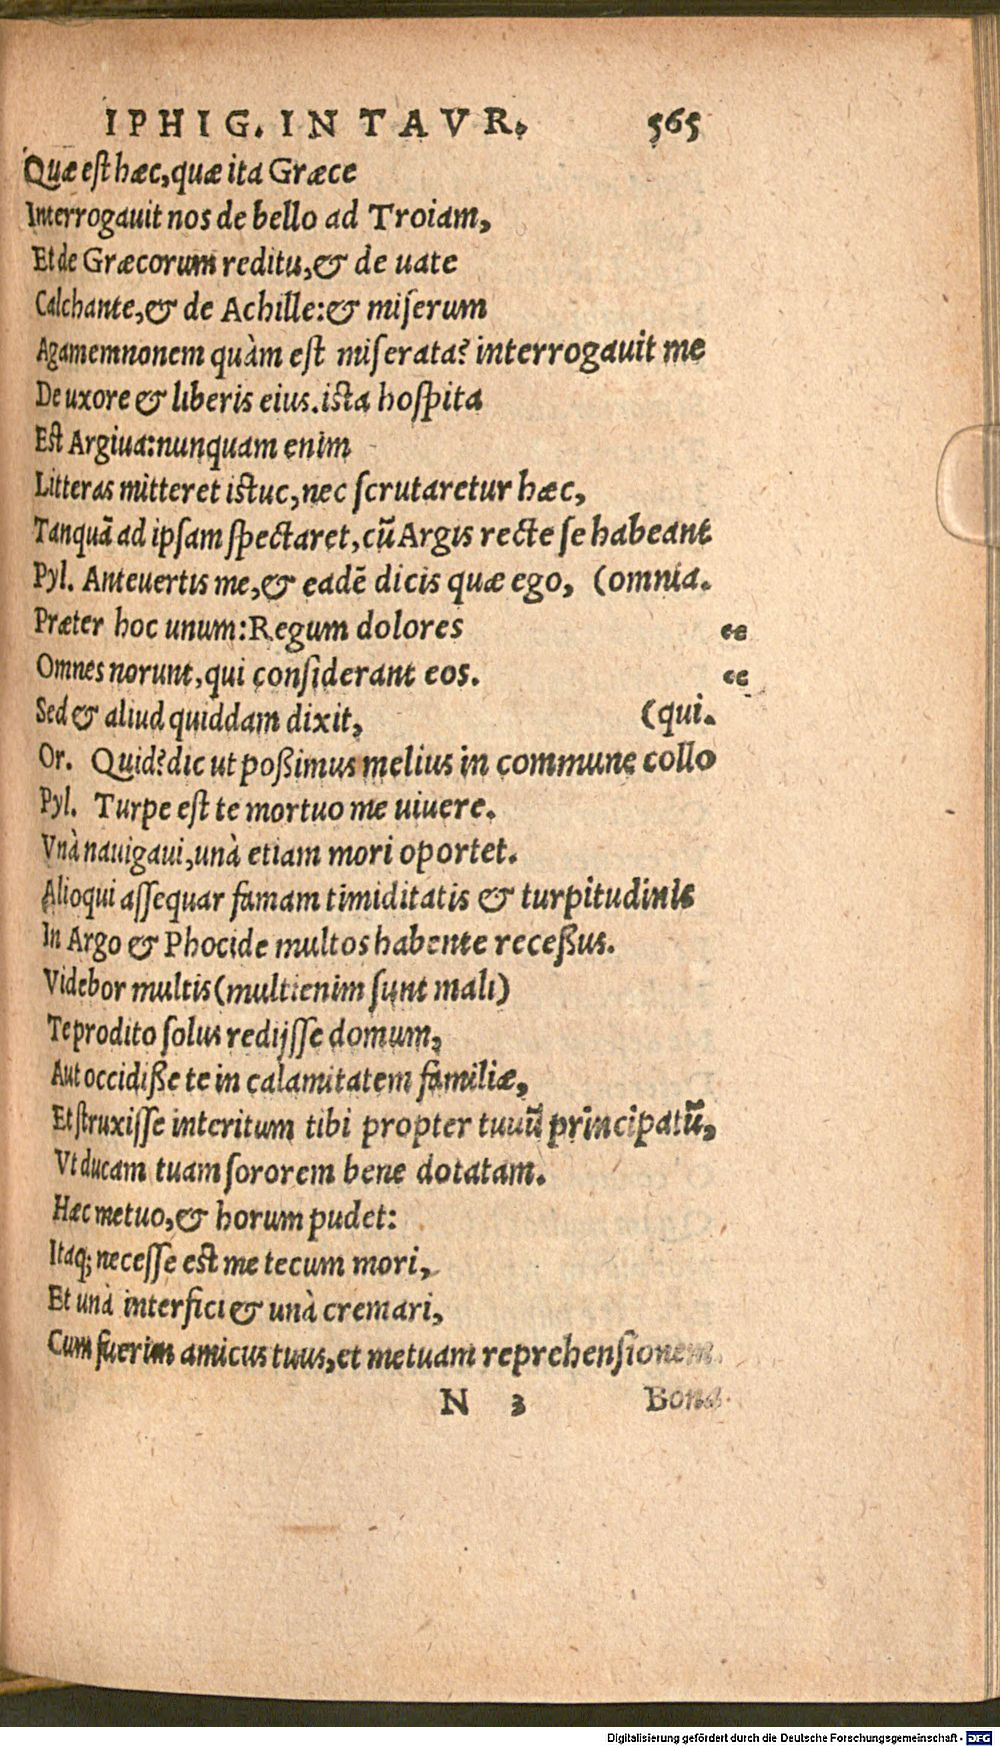 IPHIG. IN TAVR. 565
Quæ est hæc, quæ ita Græce
Interrogauit nos de bello ad Troiam,
Et de Græcorum reditu, & de uate
Calchante, & de Achille: & miserum
Agamemnonem quàm est miserata? interrogauit me
De uxore & liberis eius. ista hospita
Est Argiua: nunquam enim
Litteras mitteret istuc, nec scrutaretur hæc,
Tanquã ad ipsam spectaret, cũ Argis recte se habeant
Pyl. Anteuertis me, & eadẽ dicis quæ ego, (omnia.
Præter hoc unum: Regum dolores “
Omnes norunt, qui considerant eos. “
Sed & aliud quiddam dixit, (qui.
Or. Quid? dic ut poßimus melius in commune collo
Pyl. Turpe est te mortuo me uiuere.
Vnà nauigaui, unà etiam mori oportet.
Alioqui assequar famam timiditatis & turpitudinis
In Argo & Phocide multos habente receßus.
Videbor multis (multi enim sunt mali)
Te prodito solus redijsse domum,
Aut occidiße te in calamitatem familiæ,
Et struxisse interitum tibi propter tuuũ principatũ,
Vt ducam tuam sororem bene dotatam.
Hæc metuo, & horum pudet:
Itaq; necesse est me tecum mori,
Et unà interfici & unà cremari,
Cum fuerim amicus tuus, et metuam reprehensionem.
N 3 Bona
Digitalisierung gefördert durch die Deutsche Forschungsgemeinschaft - DFG